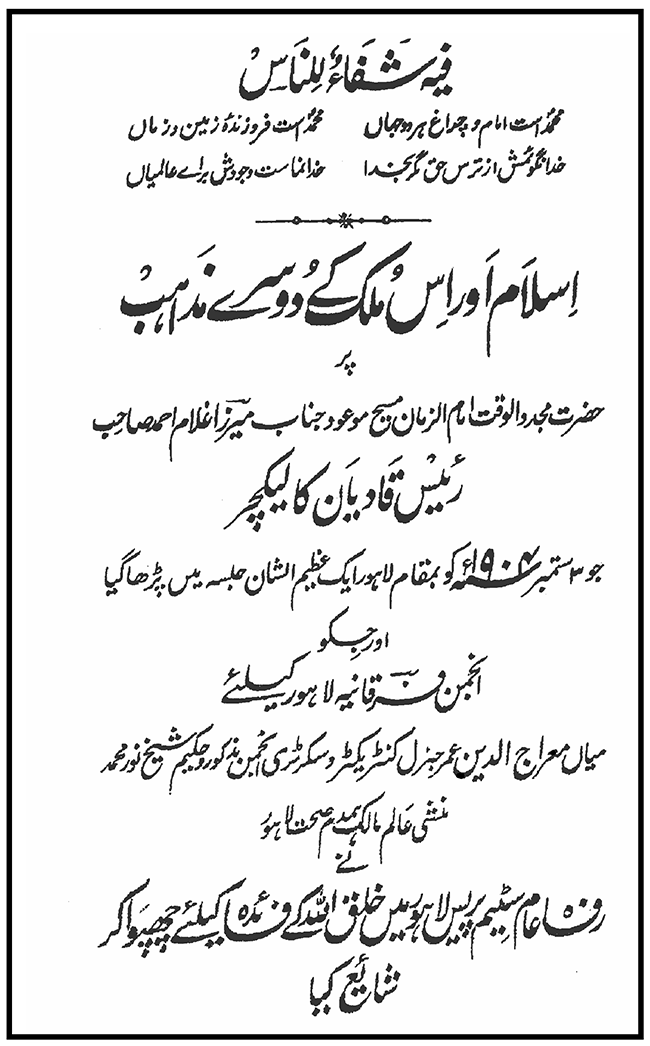 فیہ شفاءٌ للناس
محمدؐ است امام و چراغ ہر دو جہاں محمدؐ است فروزندۂ زمین و زماں
خدا نگوئمش از ترس حق مگر بخدا خدا نماست وجودش برائے عالمیاں
اسلام اور اس ملک کے دوسرے مذاہب
پر
حضرت مجدد الوقت امام الزمان مسیح موعود جناب میرزا غلام احمد صاحب
رئیس قادیان کا لیکچر
جو ۳ ستمبر ۱۹۰۴ء کو بمقام لاہور ایک عظیم الشان جلسہ میں پڑھا گیا
اور جسکو
انجمن فرقانیہ لاہور کیلئے
میاں معراج الدین عمر جنرل کنٹریکٹر و سکرٹری انجمن مذکور و حکیم شیخ نور محمد
منشی عالم مالک ہمدم صحت لاہور
نے
رفاہ عام سٹیم پریس لاہور میں خلق اللہ کے فائدہ کیلئے چھپوا کر
شایع کیا